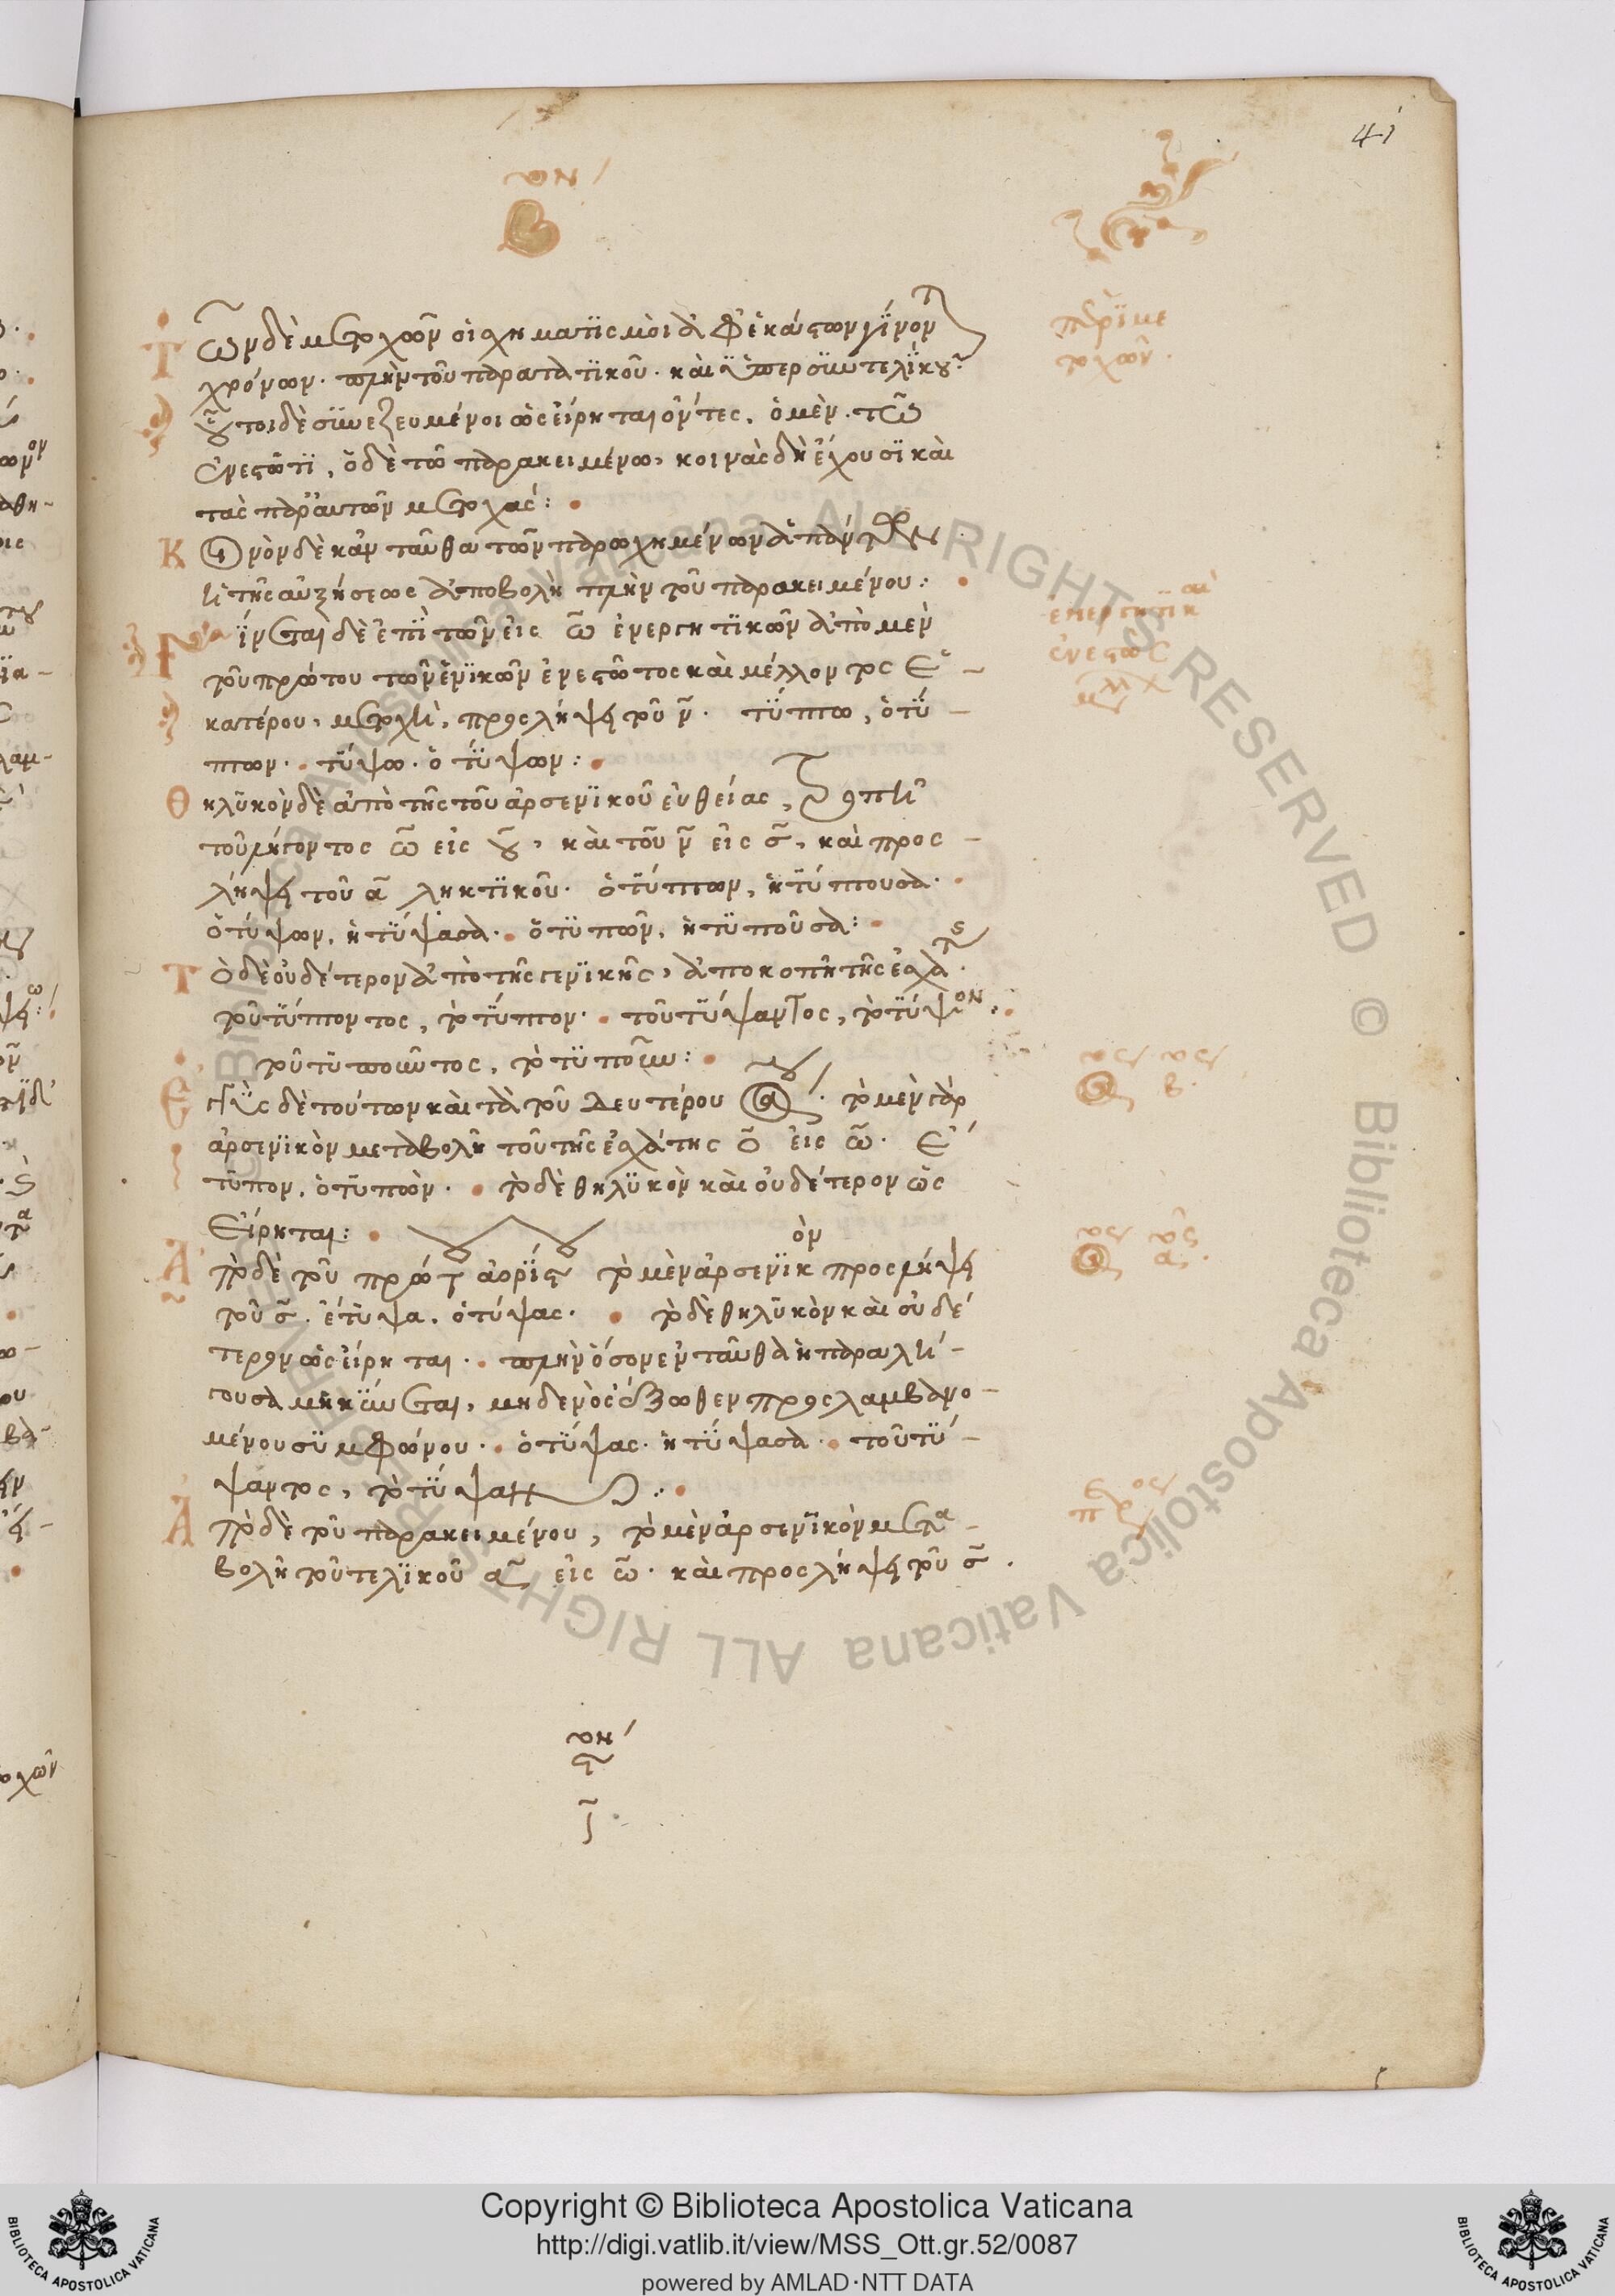 41
Τῶν δὲ μετοχῶν οἱ σχηματισμοὶ ἀφ' ἑκάστων γίνονται
χρόνων· πλὴν τοῦ παρατατικοῦ· καὶ ὑπερσυντελίκου·
οὗτοι δὲ συνεζευμένοι ὡς εἴρηται ὄντες, ὁ μὲν· τῶ
ἐνεστῶτι, ὁ δὲ τῶ παρακειμένω, κοινὰς δὴ ἔχουσι καὶ
τὰς παρ' αὐτῶν μετοχάς:
Κοινὸν δὲ κἀνταῦθα τῶν παρωχημένων ἁπάντων
ἡ τῆς αὐξήσεως ἀποβολὴ πλὴν τοῦ παρακειμένου:
Γίνεται δὲ ἐπὶ τῶν εἰς ω ἐνεργητικῶν ἀπὸ μὲν
τοῦ πρώτου τῶν ἑνικῶν ἐνεστῶτος καὶ μέλλοντος ἑ-
κατέρου, μετοχὴ, προσλήψει τοῦ ν· τύπτω, ὁ τύ-
πτων· τύψω· ὁ τύψων:
Θηλυκὸν δὲ ἀπὸ τῆς τοῦ ἀρσενικοῦ εὐθείας, τροπῆ
τοῦ λήγοντος ω εἰς ου, καὶ τοῦ ν εἰς σ, καὶ προσ-
λήψει τοῦ α ληκτικοῦ· ὁ τύπτων, ἡ τύπτουσα·
ὁ τύψων, ἡ τύψασα· ὁ τυπῶν, ἡ τυποῦσα:
Τὸ δὲ οὐδέτερον ἀπὸ τῆς γενικῆς, ἀποκοπῆ τῆς ἐσχάτης·
τοῦ τύπτοντος, τὸ τύπτον· τοῦ τύψαντος, τὸ τύψον:
τοῦ τυποῦντος, τὸ τυποῦν:
Ἐγγὺς δὲ τούτων καὶ τὰ τοῦ δευτέρου ἀορίστου· τὸ μὲν γὰρ
ἀρσενικὸν μεταβολῆ τοῦ τῆς ἐσχάτης ο εἰς ω· ἔ
τυπον, ὁ τυπῶν· τὸ δὲ θηλυκὸν καὶ οὐδέτερον ὡς
εἴρηται:
Ἀπὸ δὲ τοῦ πρώτου ἀορίστου τὸ μὲν ἀρσενικὸν προσλήψει
τοῦ σ· ἔτυψα· ὁ τύψας· τὸ δὲ θηλυκὸν καὶ οὐδέ
τερον ὡς εἴρηται· πλὴν ὅσον ἐνταῦθα ἡ παραλή-
γουσα μὴ κινῆται, μηδενὸς ἔξωθεν προσλαμβανο-
μένου συμφώνου· ὁ τύψας· ἡ τύψασα· τοῦ τύ-
ψαντος, τὸ τύψαν:
Ἀπὸ δὲ τοῦ παρακειμένου, τὸ μὲν ἀρσενικὸν μετα-
βολῆ τοῦ τελικοῦ α εἰς ω· καὶ προσλήψει τοῦ σ·
περὶ με
τοχῶν·
ἐνεργητικαὶ
ἐνεστὼς
Copyright © Biblioteca Apostolica Vaticana
http://digi.vatlib.it/view/MSS_Ott.gr.52/0087
powered by AMLAD·NTT DATA
BIBLIOTECA APOSTOLICA VATICANA
BIBLIOTECA APOSTOLICA VATICANA
Biblioteca Apostolica Vaticana ALL RIGHTS RESERVED © Biblioteca Apostolica Vaticana ALL RIGHTS